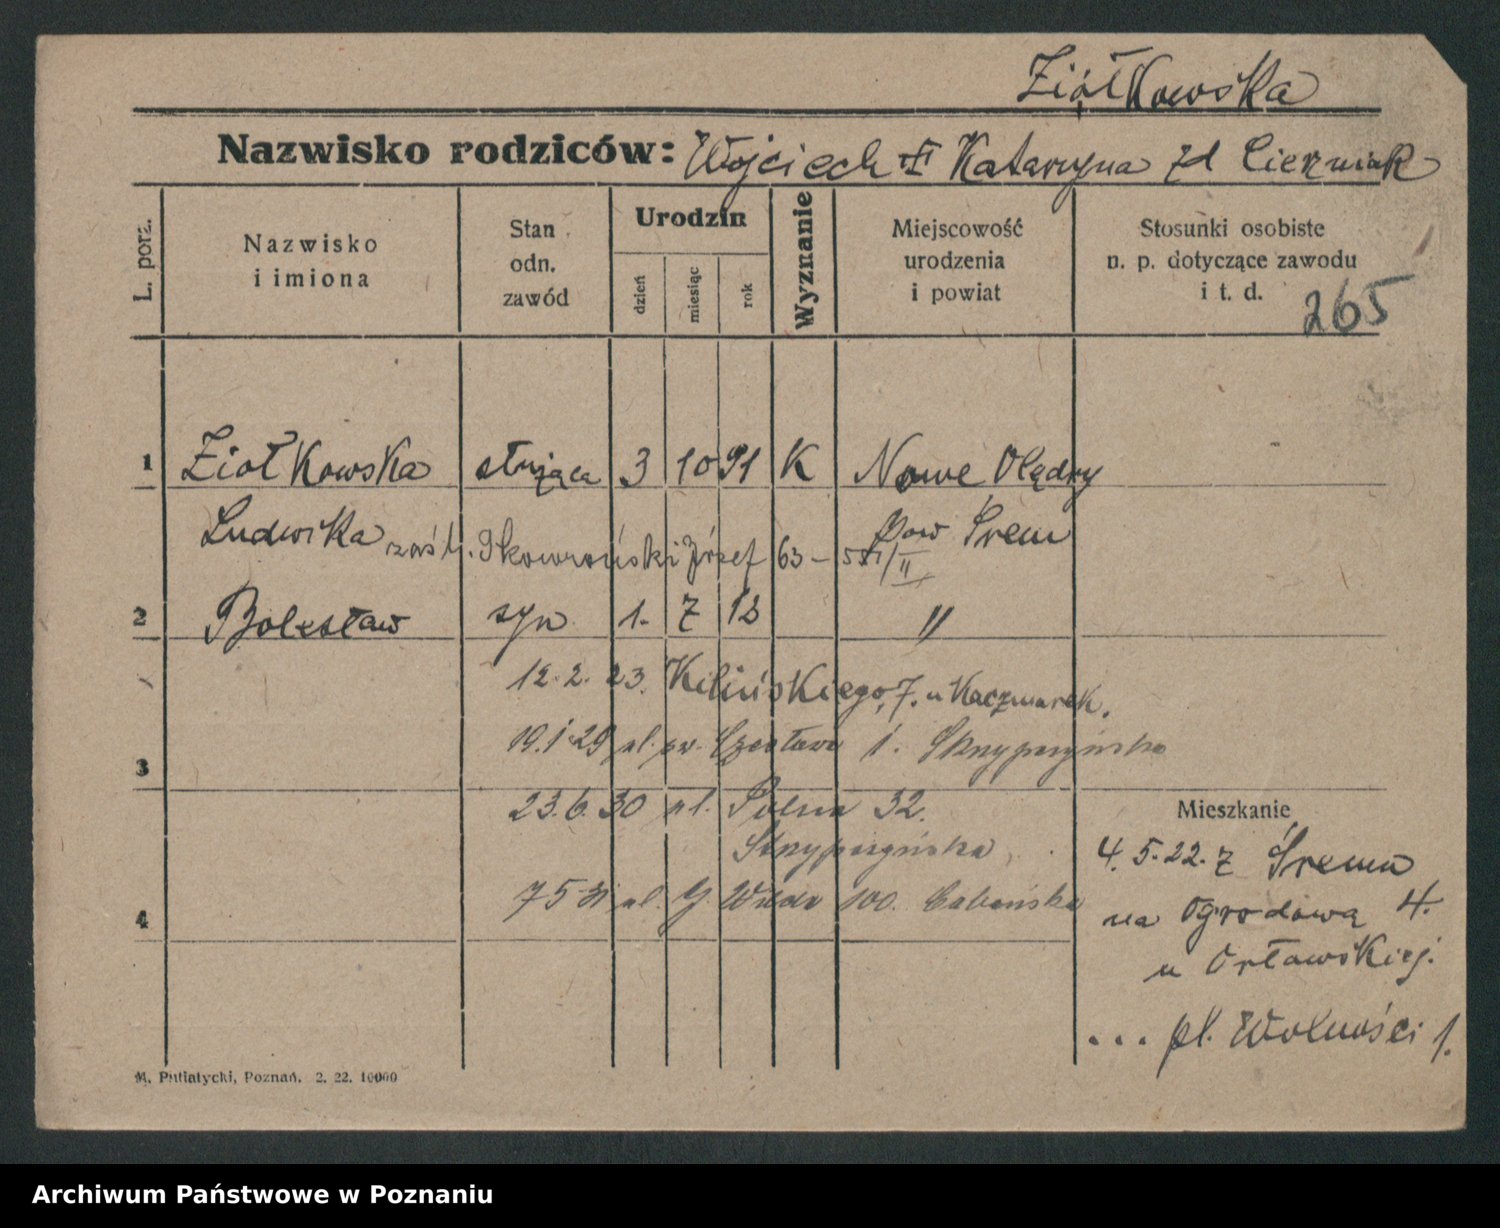 Ziółkowska
Nazwisko rodziców: Wojciech i Katarzyna zd Cierniak
L. porz.
Nazwisko
i imiona
Stan
odn.
zawód
Urodzin
dzień
miesiąc
rok
Wyznanie
Miejscowość
urodzenia
i powiat
Stosunki osobiste
n. p. dotyczące zawodu
i t. d.
265
1 Ziołkowska służąca 3 10 91 K Nowe Olędry
Ludwika Skowroński Józef 63 - pow Śrem
2 Bolesław syn 1. 7 12 "
12. 2. 23. Kilińskiego 7. u Kaczmarek.
19.1.29 pl. św. Czesława 1.
3
23.6.30 ul. Polna 32.
Mieszkanie
4. 5. 22. z Śremu
4
ul. G. Wilda 100.
na Ogrodową 4.
u Orławskiej.
... pl. Wolności 1.
M. Putiatycki, Poznań. 2. 22. 10000
Archiwum Państwowe w Poznaniu